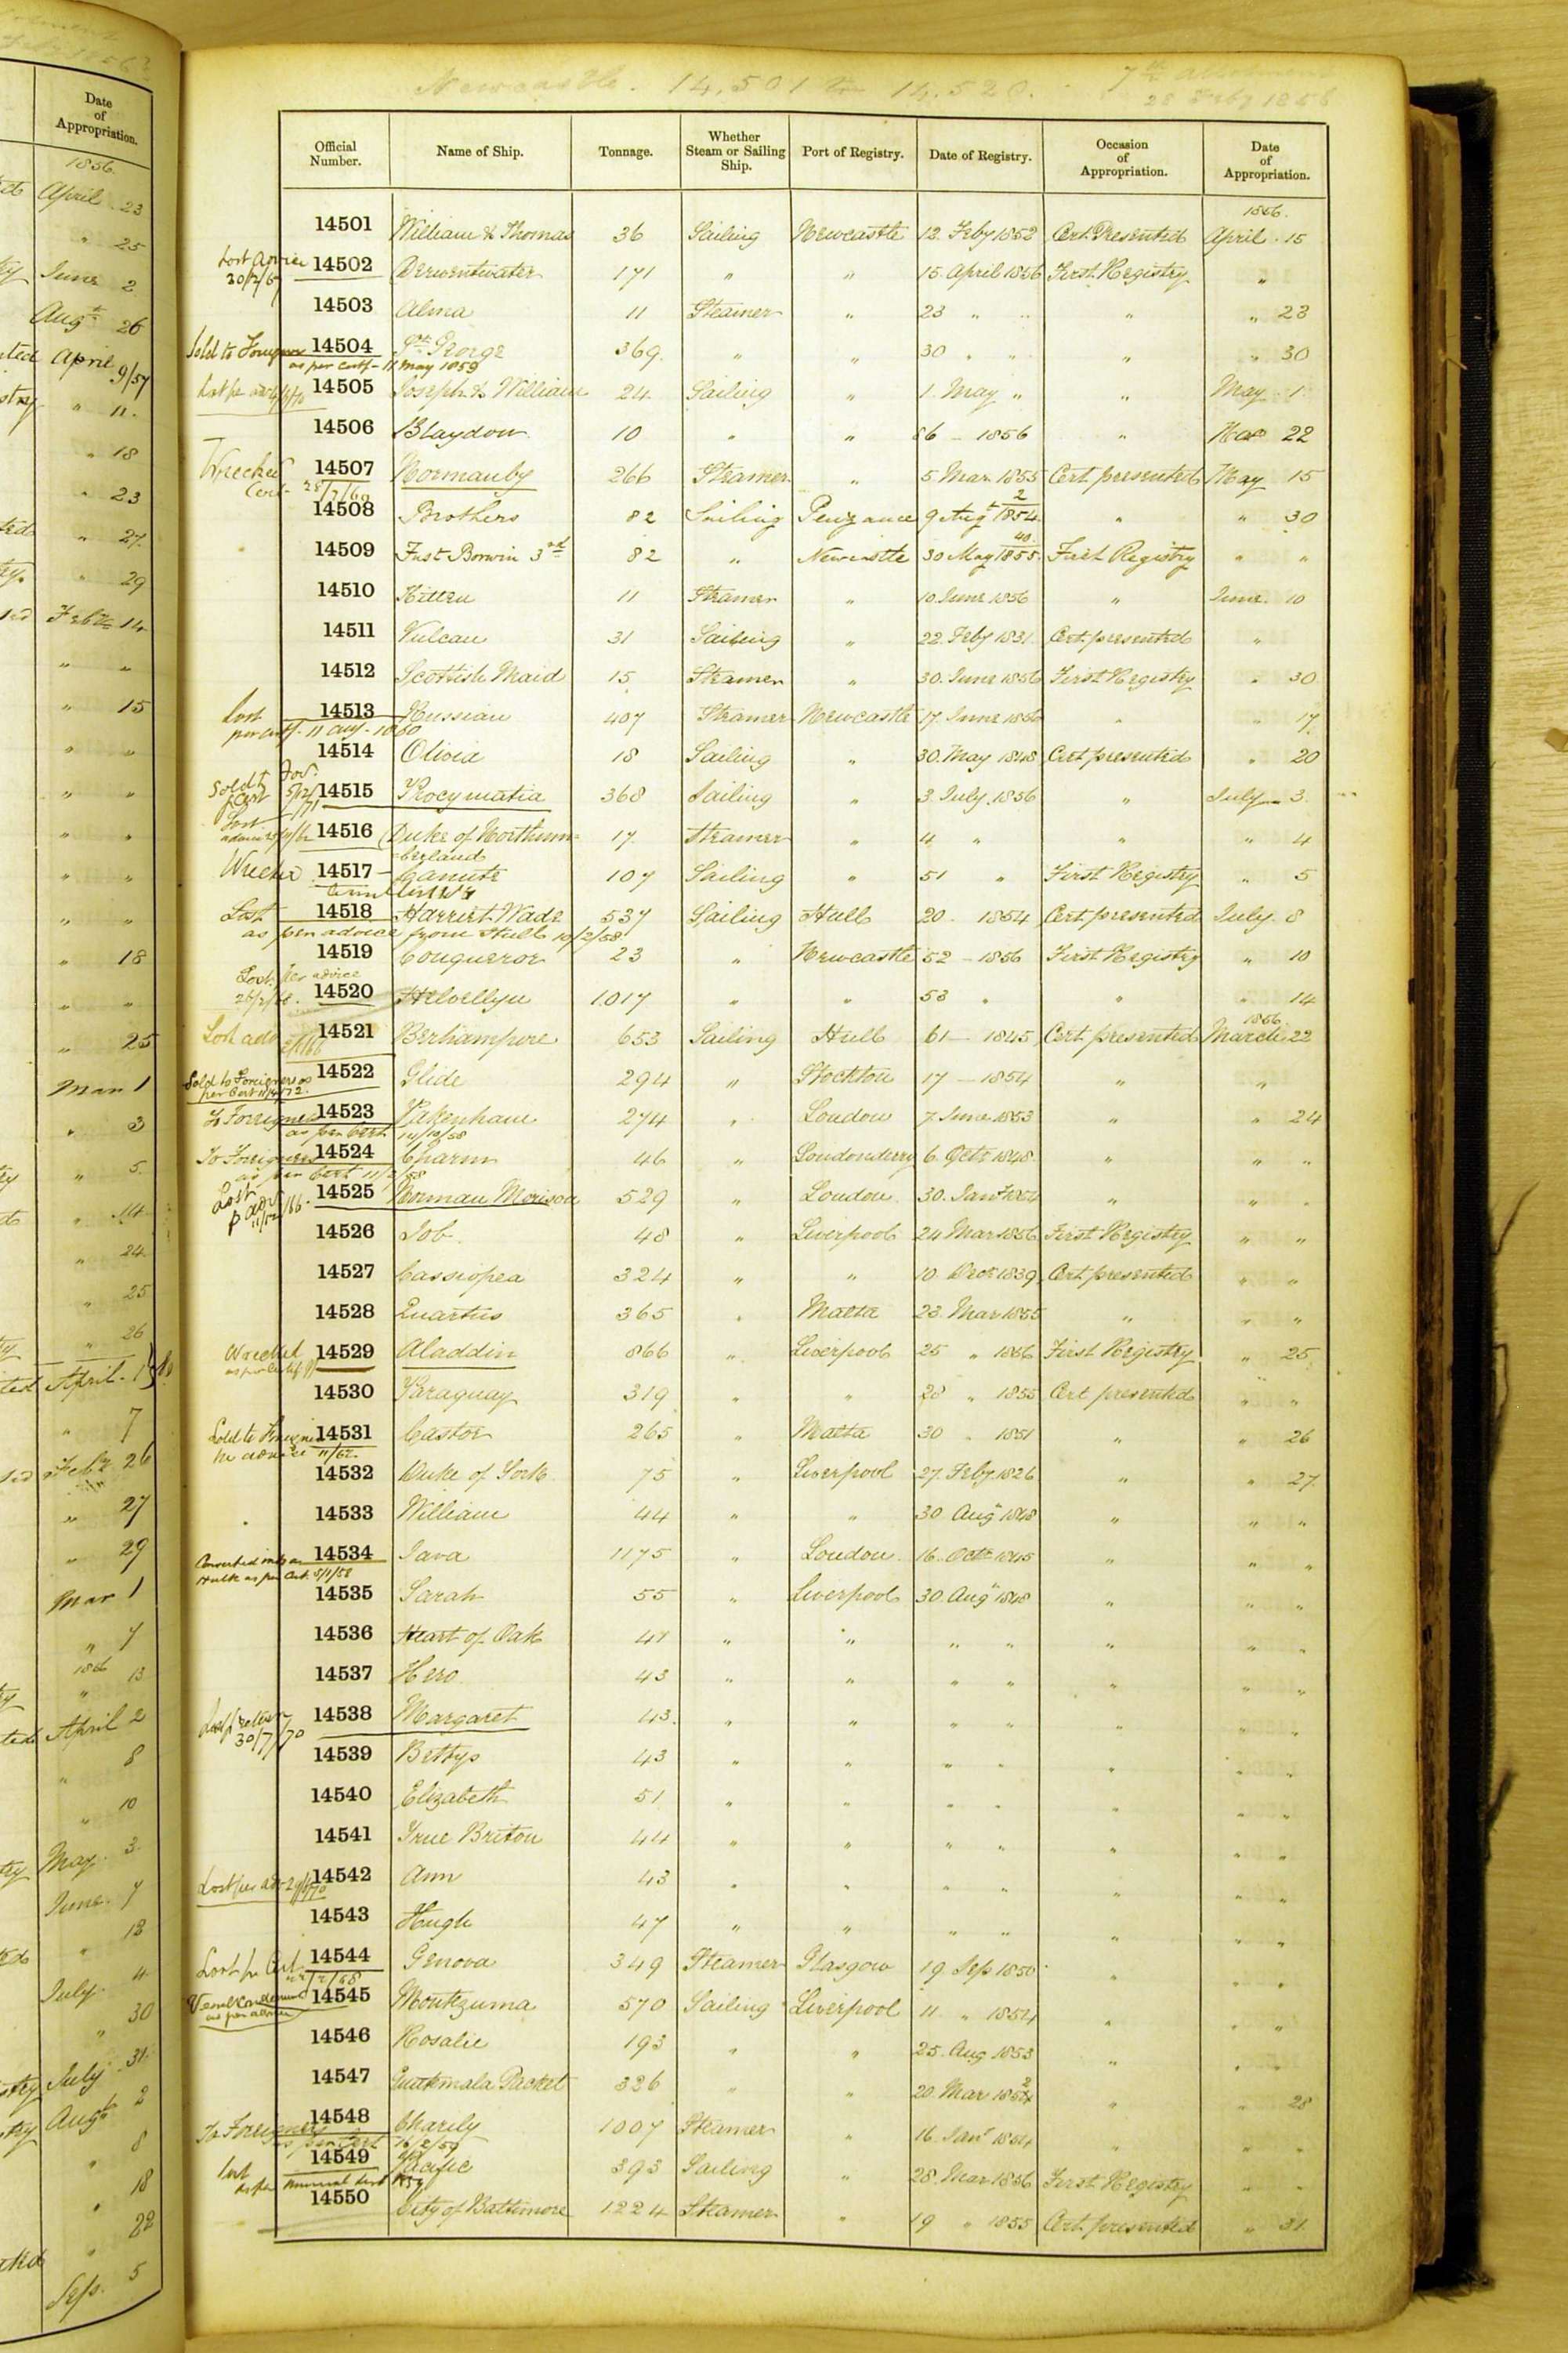 Date
of
Appropriation.
1856.
April 23
" 25
June 2
Augt 26
April 9/57
" 11.
" 18
" 23
" 27.
" 29
Feb 14
" "
" 15
" "
" "
" "
" "
" "
" 18
" "
" 25
Mar 1
" 3
" 5.
" 14
" 24
" 25
" 26
April
" 7
Feb 26
" 27
" 29
Mar 1
" 7
1856
" 13
April 2
" 8
" 10
May 3
June 7
" 13
July 4
" 30
July 31
Augt 2
" 8
" 18
" 22
Sep. 5
Newcastle. 14,501 to 14,520. 7th allotment
28 Feby 1856
Official Number. Name of Ship. Tonnage. Whether Steam or Sailing Ship. Port of Registry. Date of Registry. Occasion of Appropriation. Date of Appropriation.
1856.
14501 William & Thomas 36 Sailing Newcastle 12. Feby 1852 Cert. Presented April 15
Lost advice 14502 Derwentwater 171 " " 15. April 1856 First Registry "
14503 Alma 11 Steamer " 23 " " " " 23
Sold to Foreigners 14504 Gt. George 369. " " 30 " " " " 30
as per certf - 11 May 1859
14505 Joseph & William 24. Sailing " 1. May " " May 1
14506 Blaydon 10 " " 36 - 1856 " 22
Wrecked 14507 Normanby 266 Steamer " 5 Mar 1855 Cert presented May 15
Cert 28/7/60
14508 Brothers 82 Sailing Penzance 9 Augt 1854 " " 30
14509 Fust Borwin 3rd 82 " Newcastle 30 May 1855 First Registry " "
14510 Kitten 11 Steamer " 10 June 1856 " June 10
14511 Vulcan 31 Sailing " 22. Feby 1831 Cert presented "
14512 Scottish Maid 15 Steamer " 30. June 1856 First Registry " 30
Lost 14513 Russian 407 Steamer Newcastle 17. June 1856 " " 17.
per certf - 11 Aug - 1860
14514 Olivia 18 Sailing " 30. May 1848 Cert presented " 20
Sold to For. 14515 Procymatia 368 Sailing " 3. July 1856 " July 3.
Lost 14516 Duke of Northum- 17 Steamer " 4 " " " 4
-berland
Wrecked 14517 Canute 107 Sailing " 51 " First Registry " 5
Lost 14518 Harriet Wade 537 Sailing Hull 20. 1854 Cert presented July 8
as per advice from Hull 10/2/58
14519 Conqueror 23 " Newcastle 52 - 1856 First Registry " 10
Lost per advice
14520 Helvellyn 1017 " " 53 " " " 14
1856
14521 Berhampore 653 Sailing Hull 61 - 1845 Cert presented March 22
Sold to Foreigners as
14522 Glide 294 " Stockton 17 - 1854 " "
To Foreigners 14523 Pakenham 274 " London 7 June 1853 " " 24
as per Cert 14/10/58
To Foreigners 14524 Charm 46 " Londonderry 6. Octr 1848 " " "
as per Cert 11/2/58
Lost 14525 Norman Morison 529 " London 30. Jany " " "
14526 Job 48 " Liverpool 24 Mar 1856 First Registry " "
14527 Cassiopea 324 " " 10. Decr 1839 Cert presented " "
14528 Quartus 365 " Malta 23. Mar 1855 " " "
Wrecked 14529 Aladdin 866 " Liverpool 25 " 1856 First Registry " 25
14530 Paraguay 319 " " 28 " 1855 Cert presented " "
Sold to Foreigners 14531 Castor 265 " Malta 30 " 1851 " " 26
per advice 11/62
14532 Duke of York 75 " Liverpool 27. Feby 1826 " " 27.
14533 William 44 " " 30. Augt 1848 " " "
Converted into a 14534 Java 1175 " London 16. Octr 1845 " " "
Hulk as per Cert. 5/1/58
14535 Sarah 55 " Liverpool 30. Augt 1848 " " "
14536 Heart of Oak 47 " " " " " " "
14537 Hero 43 " " " " " " "
14538 Margaret 43. " " " " " " "
30/7/70
14539 Bettys 43 " " " " " " "
14540 Elizabeth 51 " " " " " " "
14541 True Briton 44 " " " " " " "
14542 Ann 43 " " " " " " "
14543 Hugh 47 " " " " " " "
Lost pr Cert 14544 Genova 349 Steamer Glasgow 19. Sep 1850 " " "
14545 Montezuma 570 Sailing Liverpool 11 " 1854 " " "
as per advice
14546 Rosalie 193 " " 25. Aug 1853 " " "
14547 Guatemala Packet 326 " " 20. Mar 1854 " " 28
To Foreigners 14548 Charity 1007 Steamer " 16. Jany 1854 " " "
as per Cert 16/2/59
Lost 14549 Pacific 393 Sailing " 28. Mar 1856 First Registry " "
14550 City of Baltimore 1224 Steamer " 19 " 1855 Cert. presented " 31.